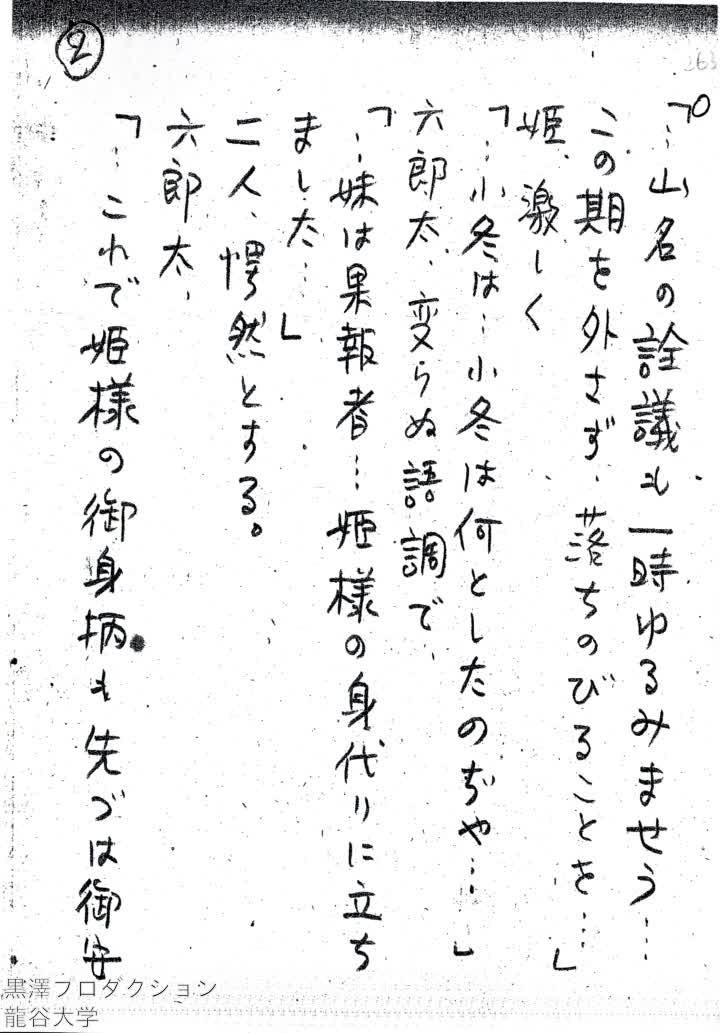 ②
263
「…山名の詮議も一時ゆるみませう…
この期を外さず、落ちのびることを…」
姫、激しく
「…小冬は…小冬は何としたのぢや…」
六郎太、変らぬ語調で、
「…妹は果報者…姫様の身代りに立ち
ました…」
二人、愕然とする。
六郎太、
「…これで姫様の御身柄も先づは御安
黒澤プロダクション
龍谷大学